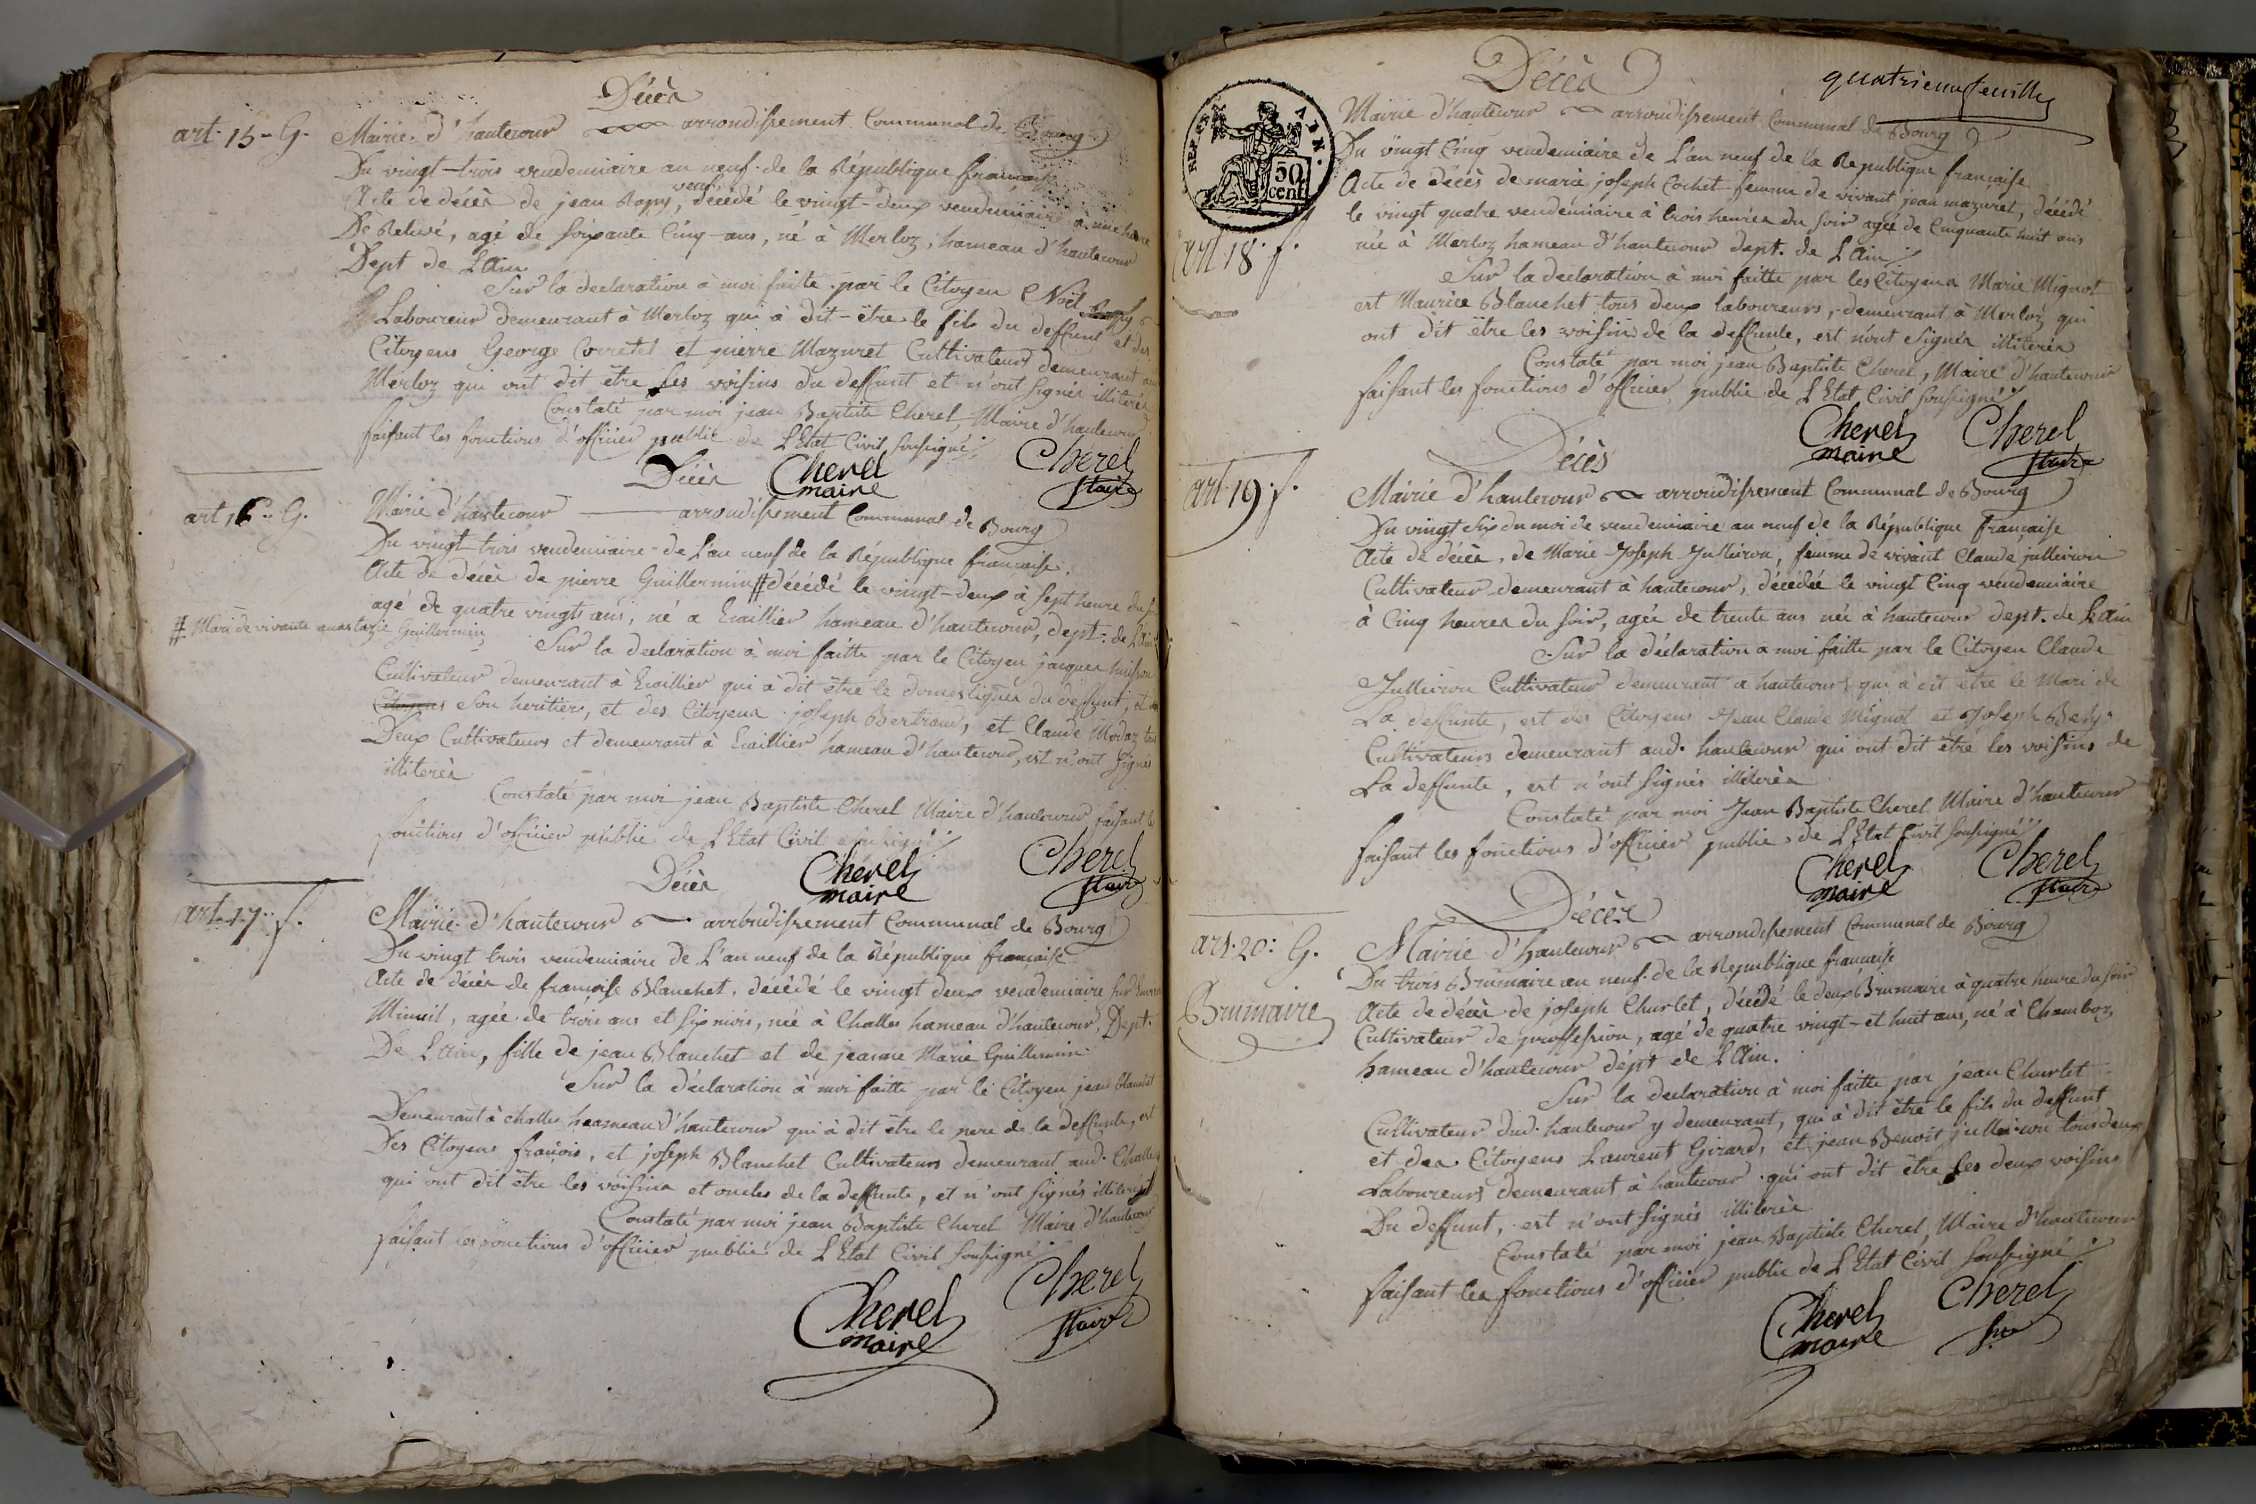 Décès
art. 15 - G. Mairie d'hautecour arrondissement Communal de Bourg
Du vingt-trois vendemiaire an neuf de la République française
Acte de décès de jean Rapy, veuf, décédé le vingt-deux vendemiaire à une heure
De Relevé, agé de soixante Cinq ans, né à Merloz, hameau d'hautecour
Dept de L'Ain
Sur la declaration à moi faite par le Citoyen Noël Rapy
Laboureur demeurant à Merloz qui à dit-être le fils du deffunt et des
Citoyens George Corretel et pierre Mazuret Cultivateurs demeurant au
Merloz qui ont dit être les voisins du deffunt et n'ont signés illiterés
Constaté par moi jean Baptiste Cherel, Maire d'hautecour
faisant les fonctions d'officier public de L'Etat Civil soussigné
Cherel maire Cherel
Décès
art 16 - G. Mairie d'hautecour arrondissement Communal de Bourg
Du vingt-trois vendemiaire de L'an neuf de la République française.
Acte de décès de pierre Guillermin # décédé le vingt-deux à sept heure du
agé de quatre vingts ans, né a hameau d'hautecour, dept. de L'Ain
# Mari de vivante anastazie Guillermin
Sur la declaration à moi faitte par le Citoyen jacques
Cultivateur demeurant à qui à dit être le domestique du deffunt, et
Citoyens son heritier, et des Citoyens joseph Bertrand, et Claude Modaz tous
Deux Cultivateurs et demeurant à hameau d'hautecour, est n'ont signés
illiterés
Constaté par moi jean Baptiste Cherel Maire d'hautecour faisant les
fonctions d'officier public de L'Etat Civil soussigné
Cherel maire Cherel
Décès
art. 17 - f. Mairie d'hautecour arrondissement Communal de Bourg
Du vingt trois vendemiaire de L'an neuf de la République française
Acte de décès de françoise Blanchet, décédé le vingt deux vendemiaire sur
Minuit, agée de trois ans et six mois, née à Challes hameau d'hautecour, Dept.
De L'Ain, fille de jean Blanchet et de jeanne Marie Guillermin
Sur la déclaration à moi faitte par le Citoyen jean Blanchet
Demeurant à Challes hameau d'hautecour qui à dit être le pere de la deffunte, est
Des Citoyens françois, et joseph Blanchet Cultivateurs demeurant aud. Challes
qui ont dit être les voisins et oncles de la deffunte, et n'ont signés illiterés
Constaté par moi jean Baptiste Cherel Maire d'hautecour
faisant les fonctions d'officier public de L'Etat Civil soussigné
Cherel maire Cherel
quatrieme feuille
REP. FRA. AIN.
50 cent.
Décès
Mairie d'hautecour arrondissement Communal de Bourg
Du vingt Cinq vendemiaire de L'an neuf de la Republique française
Acte de décès de marie joseph Cochet femme de vivant jean mazuret, décédé
le vingt quatre vendemiaire à trois heures du soir agée de Cinquante huit ans
art 18. f. née à Merloz hameau d'hautecour dept. de L'Ain
Sur la declaration à moi faitte par les Citoyens Marie Mignot
est Maurice Blanchet tous deux laboureurs, demeurant à Merloz qui
ont dit être les voisins de la deffunte, est n'ont signés illiterés
Constaté par moi jean Baptiste Cherel, Maire d'hautecour
faisant les fonctions d'officier public de L'Etat Civil soussigné
Cherel maire Cherel
Décès
art. 19. f. Mairie d'hautecour arrondissement Communal de Bourg
Du vingt six du moi de vendemiaire an neuf de la République française
Acte de décès, de Marie Joseph Jullieron, femme de vivant Claude jullieron
Cultivateur demeurant à hautecour, décédée le vingt Cinq vendemiaire
à Cinq heures du soir, agée de trente ans née à hautecour dept. de L'Ain
Sur la déclaration a moi faitte par le Citoyen Claude
Jullieron Cultivateur demeurant a hautecour qui à dit être le Mari de
La deffunte, est des Citoyens Jean Claude Mignot et Joseph
Cultivateurs demeurant aud. hautecour qui ont dit être les voisins de
La deffunte, est n'ont signés illiterés
Constaté par moi Jean Baptiste Cherel Maire d'hautecour
faisant les fonctions d'officier public de L'Etat Civil soussigné
Cherel maire Cherel
Décès
art. 20: G. Mairie d'hautecour arrondissement Communal de Bourg
Du trois Brumaire an neuf de la Republique française
Brumaire Acte de décès de joseph Churlet, décédé le deux Brumaire à quatre heure du soir
Cultivateur de proffession, agé de quatre vingt-et huit ans, né à Chamboz,
hameau d'hautecour dépt de L'Ain.
Sur la declaration à moi faitte par jean Churlet
Cultivateur dud. hautecour y demeurant, qui à dit être le fils du deffunt
et des Citoyens Laurent Girard, et jean Benoît jullieron tous deux
Laboureurs demeurant à hautecour qui ont dit être les deux voisins
Du deffunt, est n'ont signés illiterés
Constaté par moi jean Baptiste Cherel, Maire d'hautecour
faisant les fonctions d'officier public de L'Etat Civil soussigné
Cherel maire Cherel